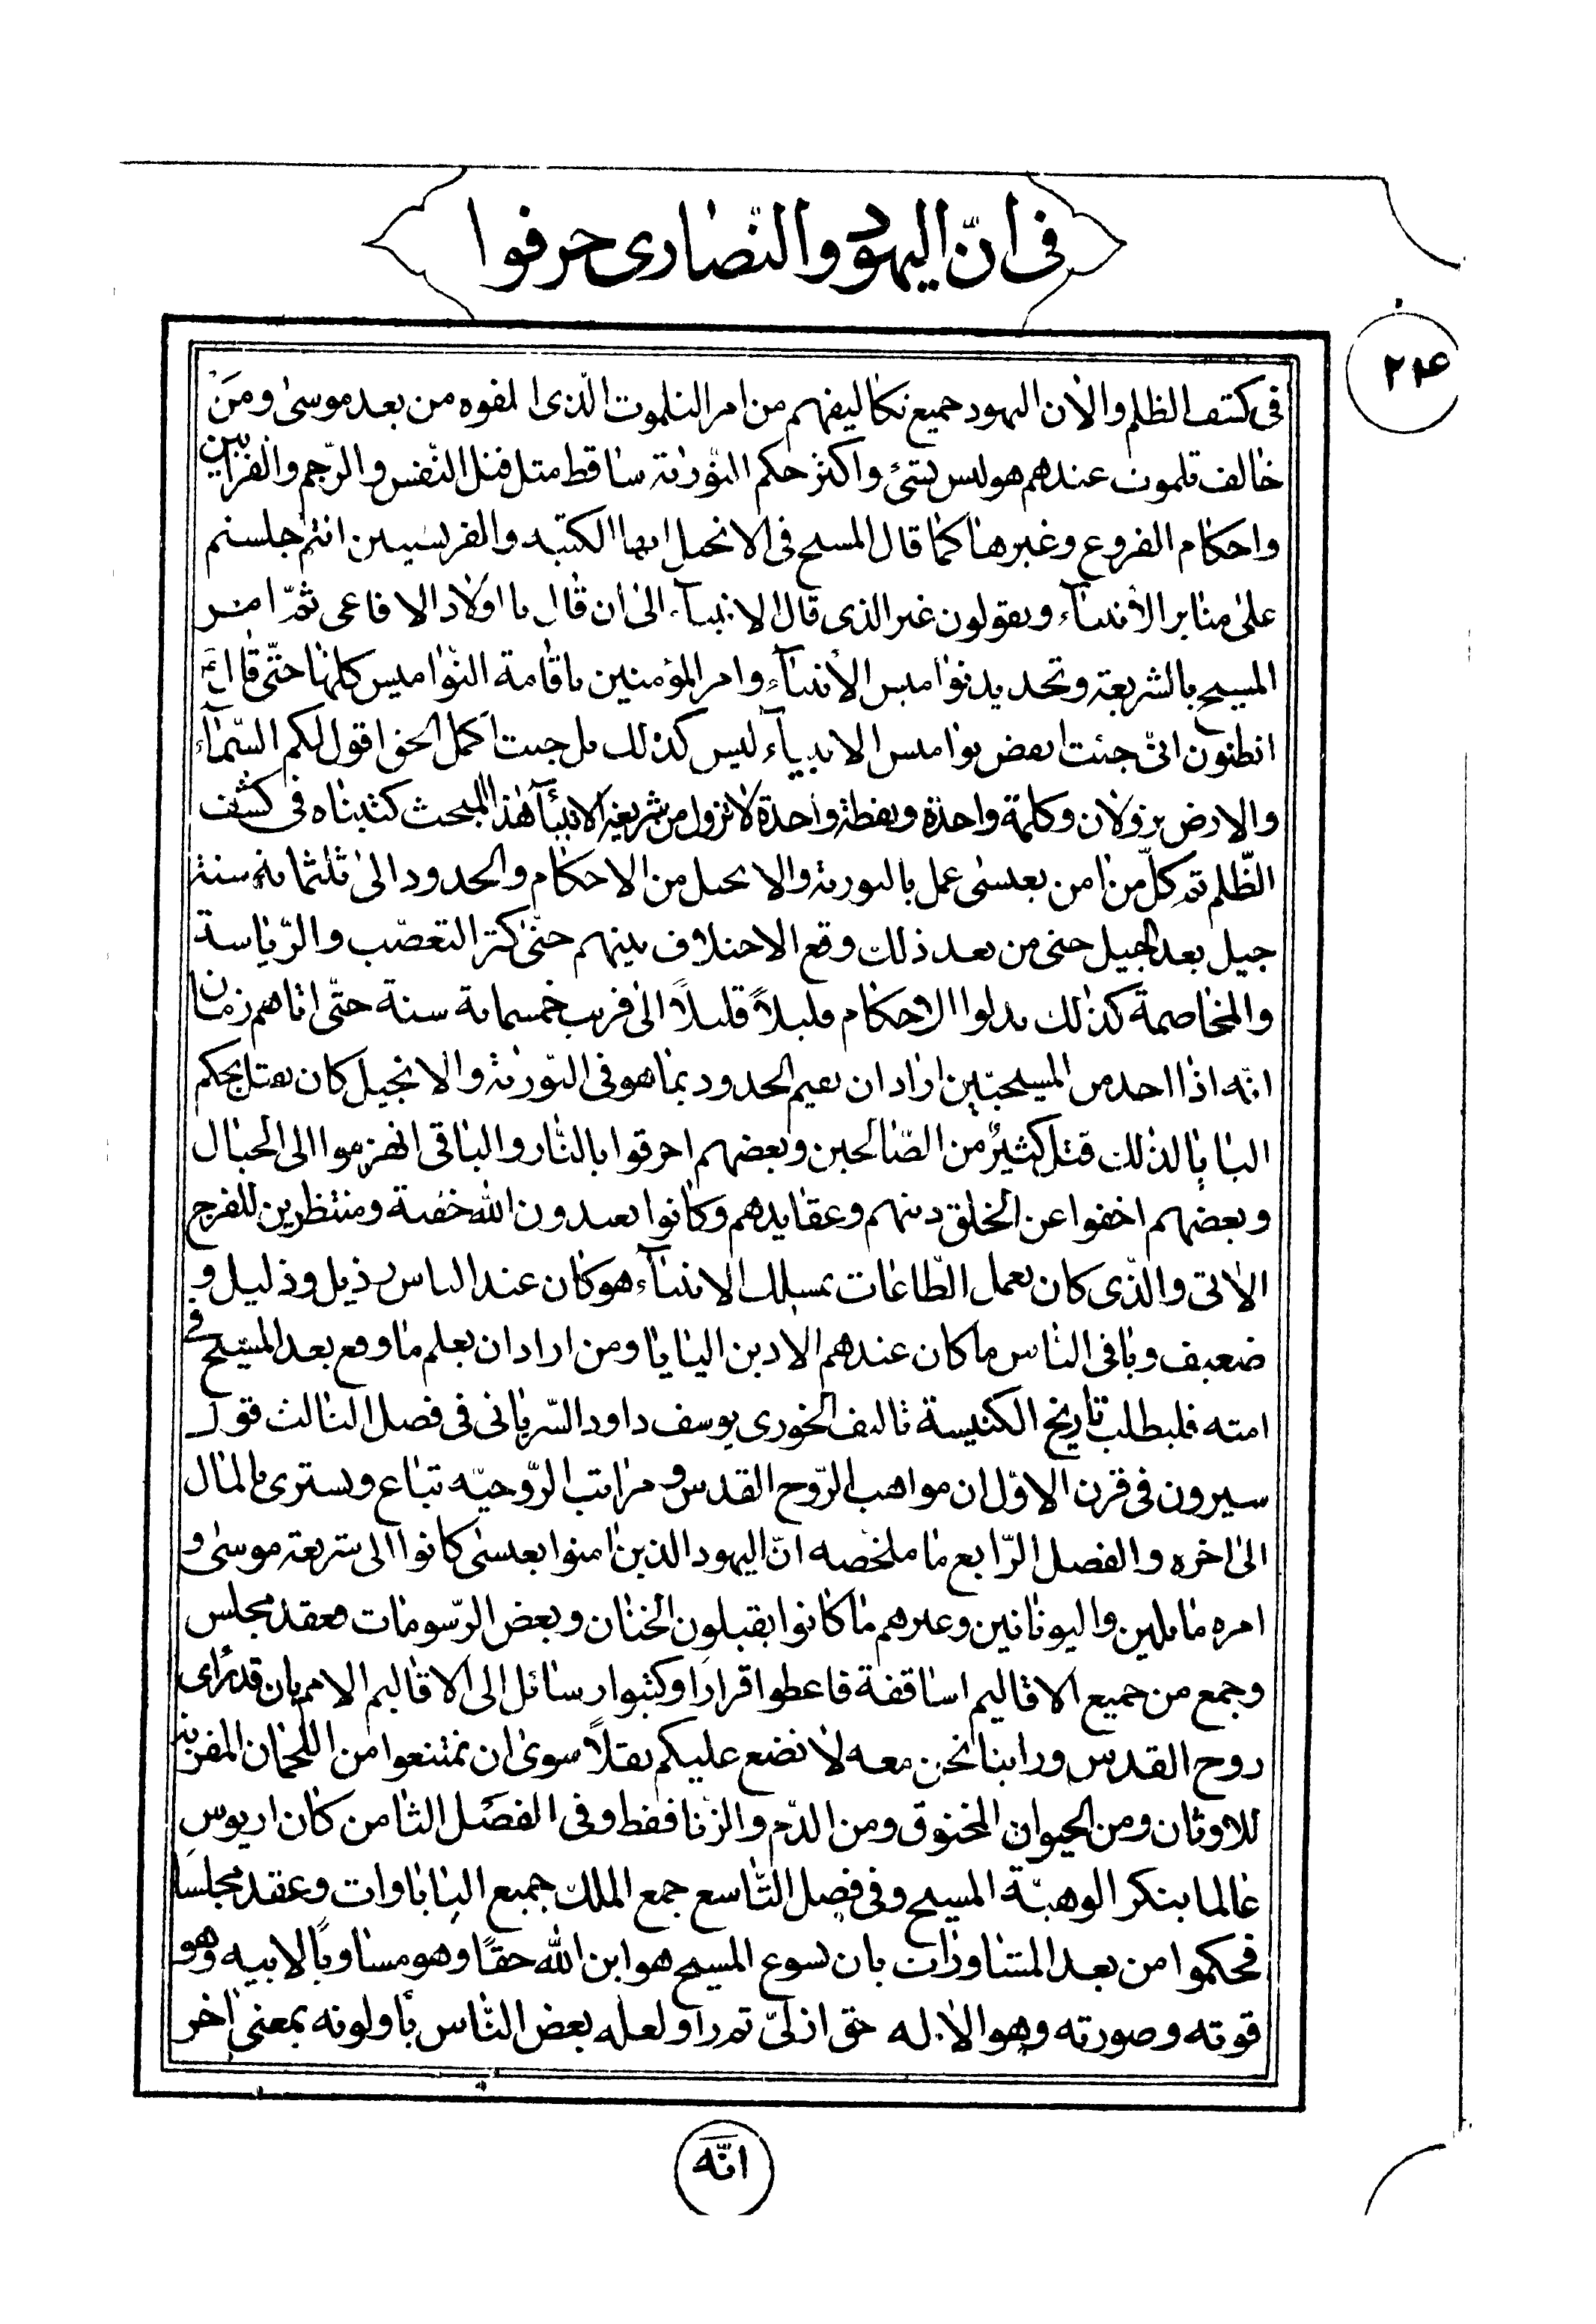 في انّ اليهود والنّصارى حرفوا
٢٢۴
في كشف الظلم والان اليهود جميع تكاليفهم من امر التلموت الّذى الفوه من بعد موسى ومن
خالف تلموت عندهم هو ليس بشئ واكثر حكم التّورية ساقط مثل قتل النّفس والرّجم والقرابين
واحكام الفروع وغيرها كما قال المسيح في الانجيل ايها الكتبه والفريسيين انتم جلستم
على منابر الأنبيآء وتقولون غير الذى قال الانبيآء الى ان قال يا اولاد الافاعى ثمّ امر
المسيح بالشريعة وتحديد نواميس الأنبيآء وامر المؤمنين باقامة النّواميس كلها حتّى قال
اتظنون انّى جئت انقض نواميس الانبيآء ليس كذلك بل جئت اكمل الحق اقول لكم السّمآء
والارض يزولان وكلمة واحدة ونقطة واحدة لا تزول من شريعة الانبيآء هذا المبحث كتبناه في كشف
الظّلم ثم كلّ من امن بعيسى عمل بالتورية والانجيل من الاحكام والحدود الى ثلثمائة سنة
جيل بعد الجيل حتى من بعد ذلك وقع الاختلاف بينهم حتّى كثر التعصّب والرّياسة
والمخاصمة كذلك بدلوا الاحكام قليلاً قليلاً الى قريب خمسمائة سنة حتّى اتاهم زمان
انّه اذا احد من المسيحيّين اراد ان يقيم الحدود بما هو في التّورية والانجيل كان يقتل بحكم
البابا لذلك قتل كثيرٌ من الصّالحين وبعضهم احرقوا بالنّار والباقى انهزموا الى الجبال
وبعضهم اخفوا عن الخلق دينهم وعقايدهم وكانوا يعبدون الله خفية ومنتظرين للفرج
الاتى والّذى كان يعمل الطّاعات بمسلك الانبيآء هو كان عند الناس رذيل وذليل و
ضعيف وباقى النّاس ما كان عندهم الا دين البابا ومن اراد ان يعلم ما وقع بعد المسيح في
امته فليطلب تاريخ الكنيسة تاليف الخورى يوسف داود السّريانى في فصل الثالث قول
سيرون في قرن الاوّل ان مواهب الرّوح القدس و مراتب الرّوحيّه تباع ويشترى بالمال
الى اخره والفصل الرّابع ما ملخصه انّ اليهود الذين امنوا بعيسى كانوا الى شريعة موسى و
امره مايلين واليونانين وغيرهم ما كانوا يقبلون الختان وبعض الرّسومات فعقد مجلس
وجمع من جميع الاقاليم اساقفة فاعطوا قرارا وكتبوا رسائل الى الاقاليم الامم بان قد رأى
روح القدس وراينا نحن معه لا نضع عليكم ثقلاً سوى ان تمتنعوا من اللحمان المقربة
للاوثان ومن الحيوان المخنوق ومن الدّم والزنا فقط وفي الفصل الثامن كان اريوس
عالما ينكر الوهيّة المسيح وفي فصل التّاسع جمع الملك جميع الباباوات وعقد مجلسا
فحكموا من بعد المشاورات بان يسوع المسيح هو ابن الله حقًا وهو مساويًا لابيه وهو
قوته وصورته وهو الاله حق ازلىّ ولعله بعض النّاس يأولونه بمعنى اخر
انّه